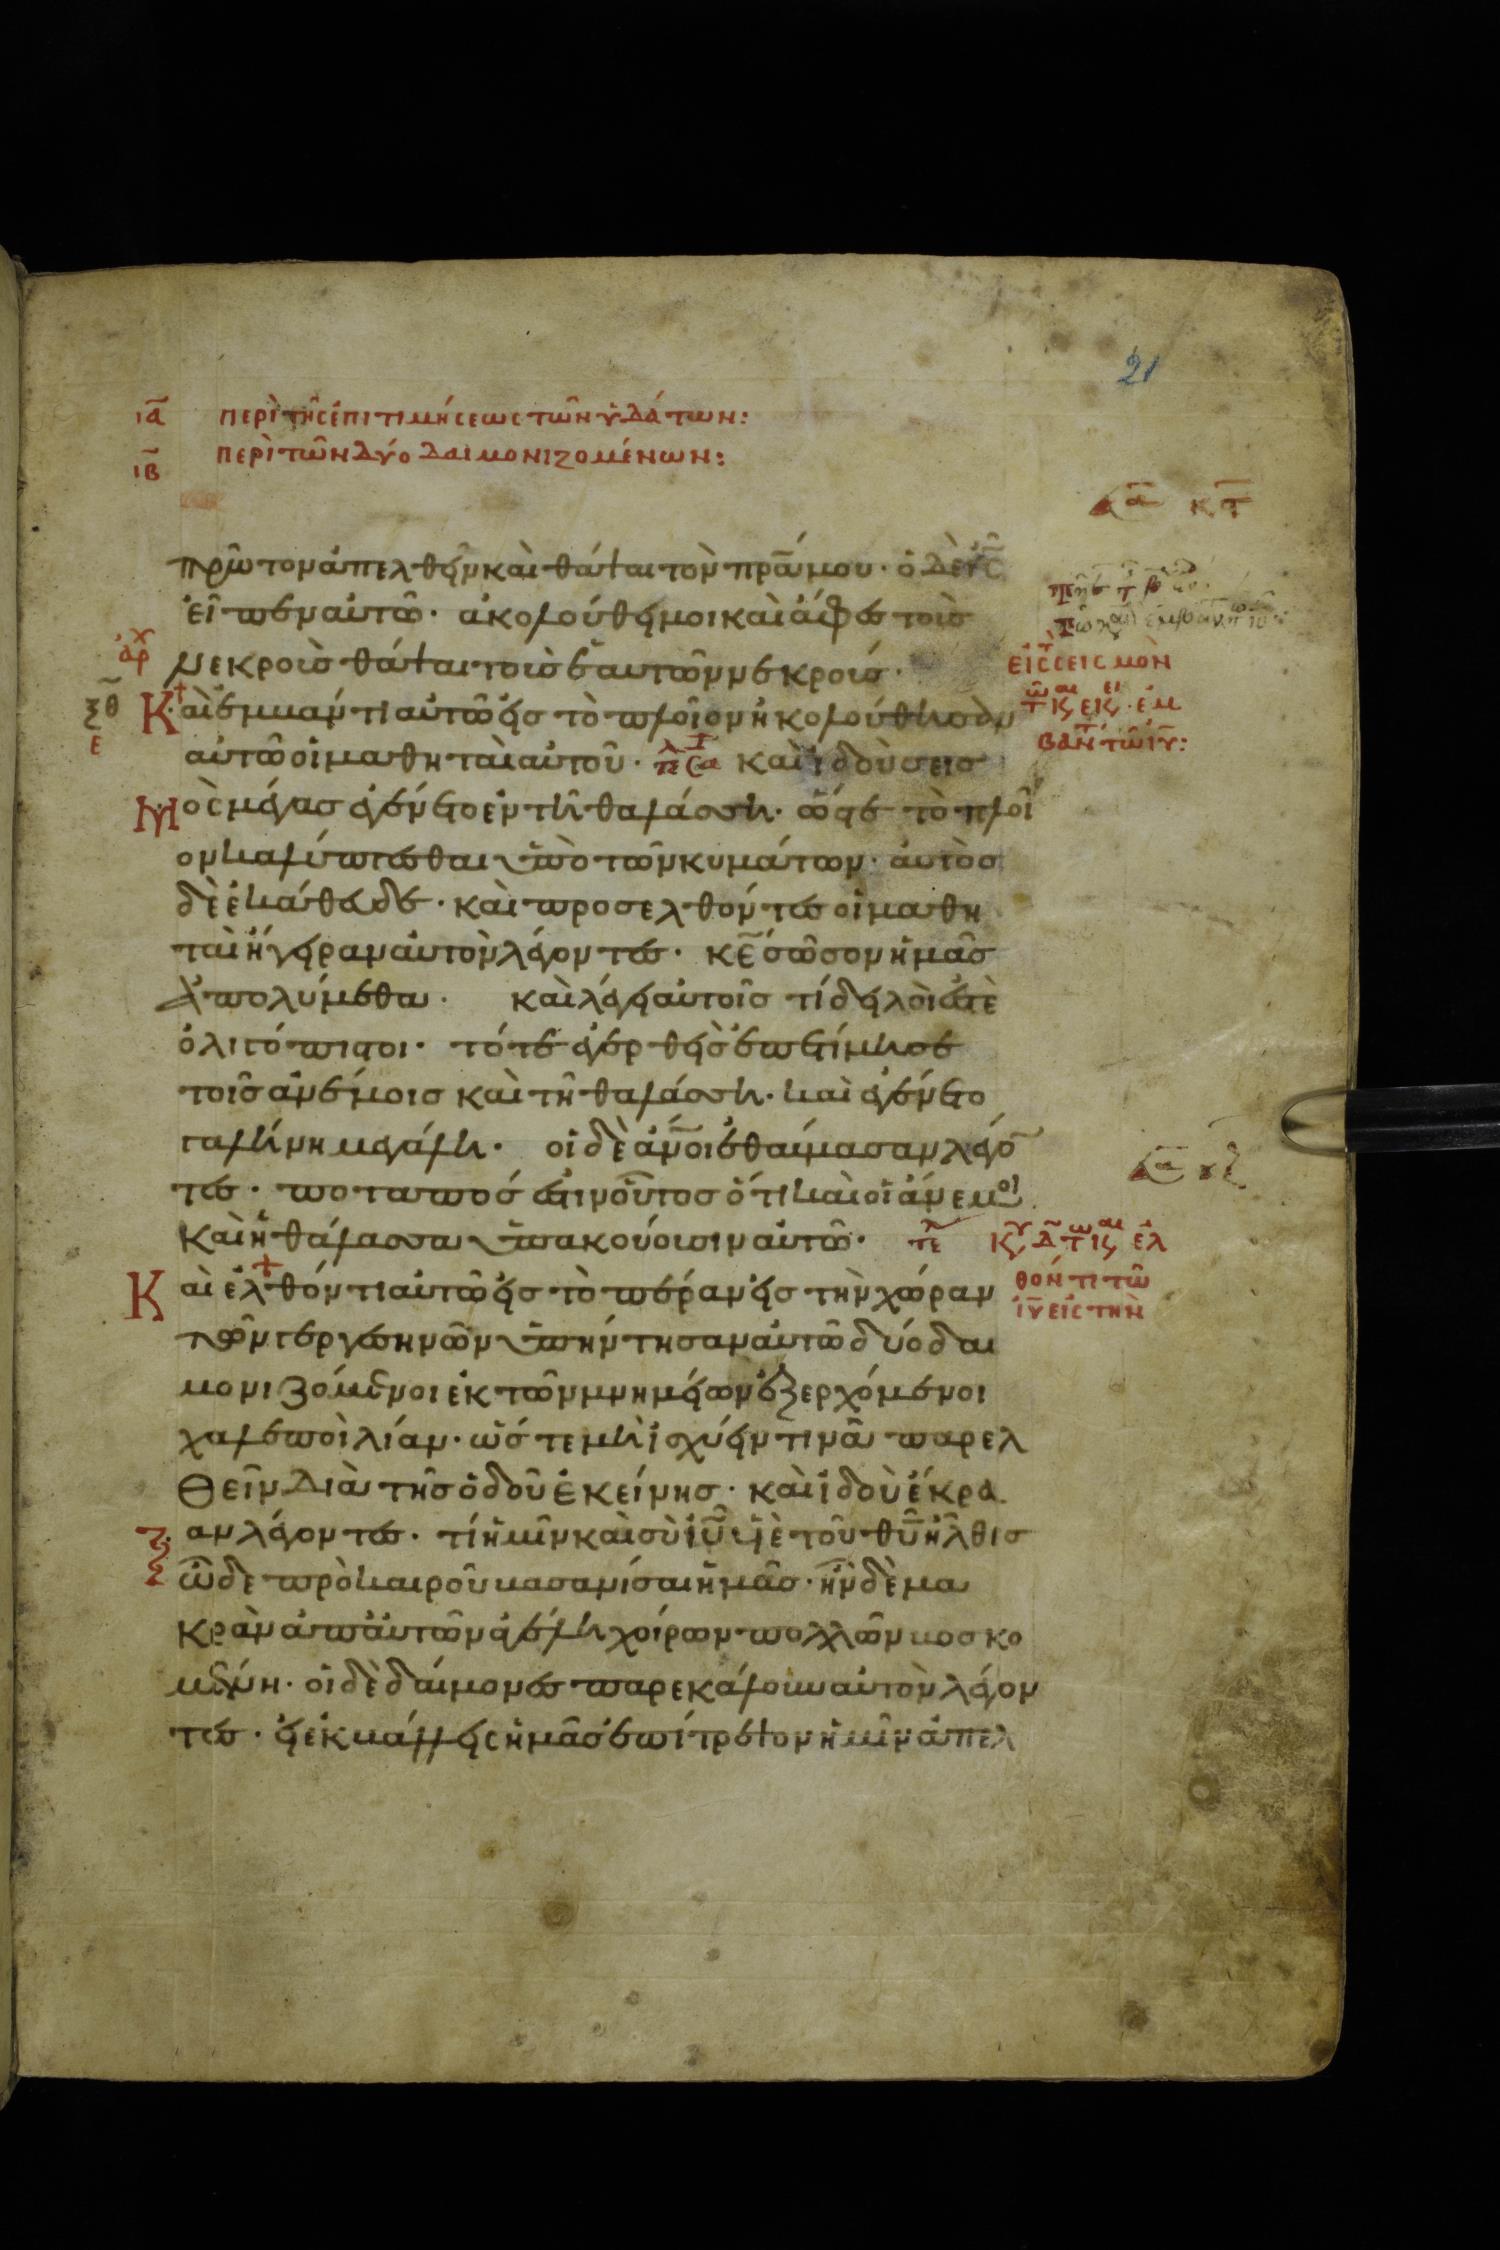 21
ια περὶ τῆς ἐπιτιμήσεως τῶν ὑδάτων:
ιβ περὶ τῶν δύο δαιμονιζομένων:
πρῶτον ἀπελθεῖν καὶ θάψαι τὸν πρα μου· ὁ δὲ ις
εἶπεν αὐτῶ· ἀκολούθει μοι καὶ ἄφες τοὺς
νεκροὺς θάψαι τοὺς ἑαυτῶν νεκρούς·
ξθ
ε
Καὶ ἐμβάντι αὐτῶ εἰς τὸ πλοῖον ἠκολούθησαν
αὐτῶ οἱ μαθηταὶ αὐτοῦ· καὶ ἰδοὺ σεισ
μὸς μέγας ἐγένετο ἐν τῆ θαλάσση· ὥστε τὸ πλοῖ
ον καλύπτεσθαι ὑπὸ τῶν κυμάτων· αὐτὸς
δὲ ἐκάθευδε· καὶ προσελθόντες οἱ μαθη
ταὶ ἤγειραν αὐτὸν λέγοντες· κε σῶσον ἡμᾶς
ἀπολύμεθα· καὶ λέγει αὐτοῖς τί δειλοί ἐστὲ
ὀλιγόπιστοι· τότε ἐγερθεὶς ἐπετίμησε
τοῖς ἀνέμοις καὶ τῆ θαλάσση· καὶ ἐγένετο
γαλήνη μεγάλη· οἱ δὲ ανοι ἐθαύμασαν λέγο
τες· ποταπός ἐστιν οὗτος ὅτι καὶ οἱ ἄνεμοι
καὶ ἡ θάλασσα ὑπακούουσιν αὐτῶ·
Καὶ ἐλθόντι αὐτῶ εἰς τὸ πέραν εἰς τὴν χώραν
τῶν γεργεσηνῶν ὑπήντησαν αὐτῶ δύο δαι
μονιζόμενοι ἐκ τῶν μνημείων ἐξερχόμενοι
χαλεποὶ λίαν· ὥστε μὴ ἰσχύειν τινὰ παρελ
θεῖν διὰ τῆς ὁδοῦ ἐκείνης· καὶ ἰδοὺ ἔκρα
ξαν λέγοντες· τί ἡμῖν καὶ σὺ ιυ υἱὲ τοῦ θυ ἦλθες
ὧδε πρὸ καιροῦ βασανίσαι ἡμᾶς· ἦν δὲ μα
κρὰν ἀπ' αὐτῶν ἀγέλη χοίρων πολλῶν βοσκο
μένη· οἱ δὲ δαίμονες παρεκάλουν αὐτὸν λέγον
τες· εἰ ἐκβάλλεις ἡμᾶς ἐπίτρεψον ἡμῖν ἀπελ
εἰς σεισμὸν
ἐμ
βάν τῶ ιυ:
ἐλ
θόντι τῶ
ιυ εἰς τὴν